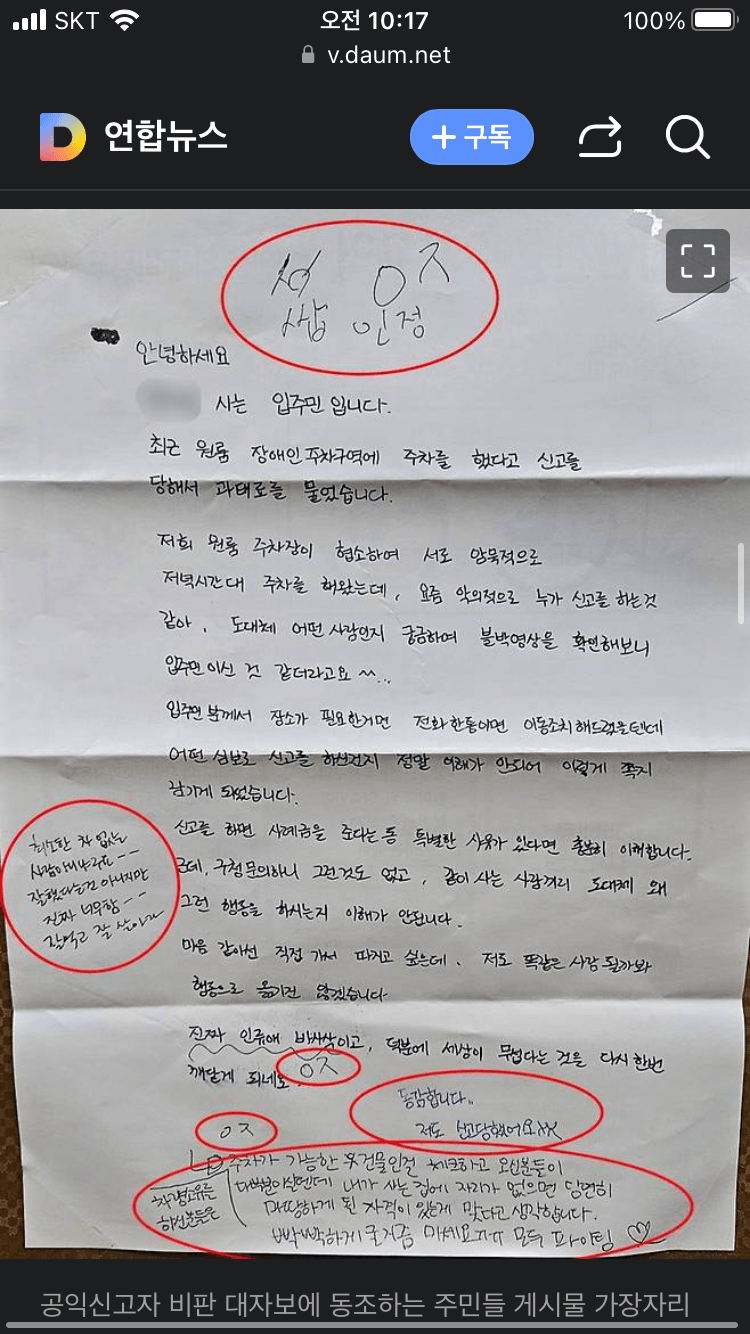 SKT 오전 10:17 100%
v.daum.net
연합뉴스 + 구독
ㅇㅈ
쌉 인정
안녕하세요
사는 입주민 입니다.
최근 원룸 장애인 주차구역에 주차를 했다고 신고를
당해서 과태료를 물었습니다.
저희 원룸 주차장이 협소하여 서로 암묵적으로
저녁시간대 주차를 해왔는데, 요즘 악의적으로 누가 신고를 하는것
같아, 도대체 어떤 사람인지 궁금하여 블박영상을 확인해보니
입주민이신 것 같더라고요 ^^...
입주민 분께서 장소가 필요한거면 전화한통이면 이동조치 해드렸을텐데
어떤 심보로 신고를 하신건지 정말 이해가 안되어 이렇게 쪽지
남기게 되었습니다.
신고를 하면 사례금을 준다는 등 특별한 사유가 있다면 충분히 이해합니다.
근데, 구청 문의하니 그런것도 없고, 같이 사는 사람끼리 도대체 왜
그런 행동을 하시는지 이해가 안됩니다.
마음 같아선 직접 가서 따지고 싶은데, 저도 똑같은 사람 될까봐
행동으로 옮기진 않겠습니다
진짜 인류애 바사삭이고, 덕분에 세상이 무섭다는 것을 다시 한번
깨닫게 되네요.
ㅇㅈ
최소한 차 없는
사람아니냐구요 --
잘했다는건 아니지만
진짜 너무함 --
잘먹고 잘 살아라
동감합니다..
저도 신고당했어요ㅉㅉ
ㅇㅈ
주차가 가능한 건물인걸 체크하고 오신분들이
대부분이실텐데 내가 사는 집에 자리가 없으면 당연히
하신분들은
마땅하게 댈 자격이 있는게 맞다고 생각합니다.
빡빡하게 굴지좀 마세요 모두 파이팅 ♡
공익신고자 비판 대자보에 동조하는 주민들 게시물 가장자리